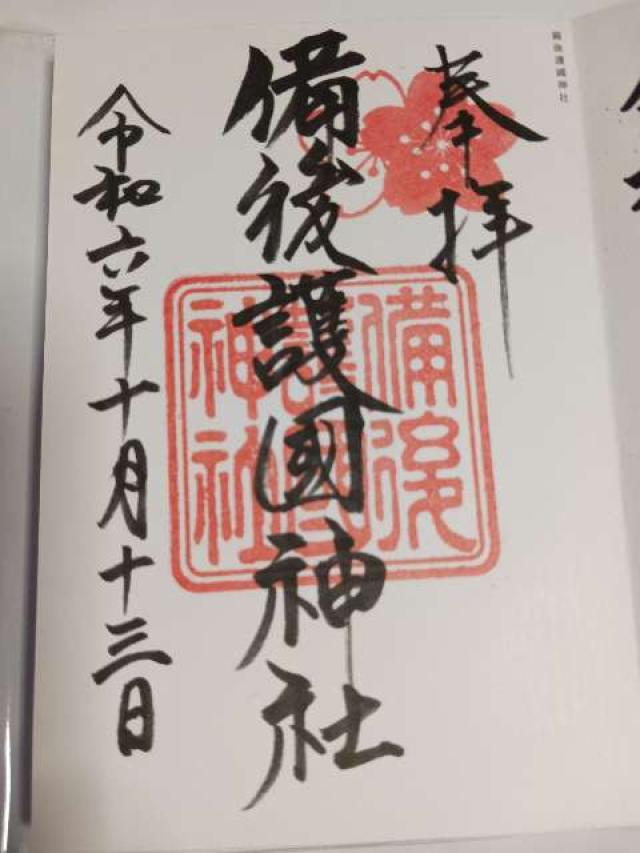 備後護國神社
奉拝
備後護國神社
備後
護國
神社
令和六年十月十三日